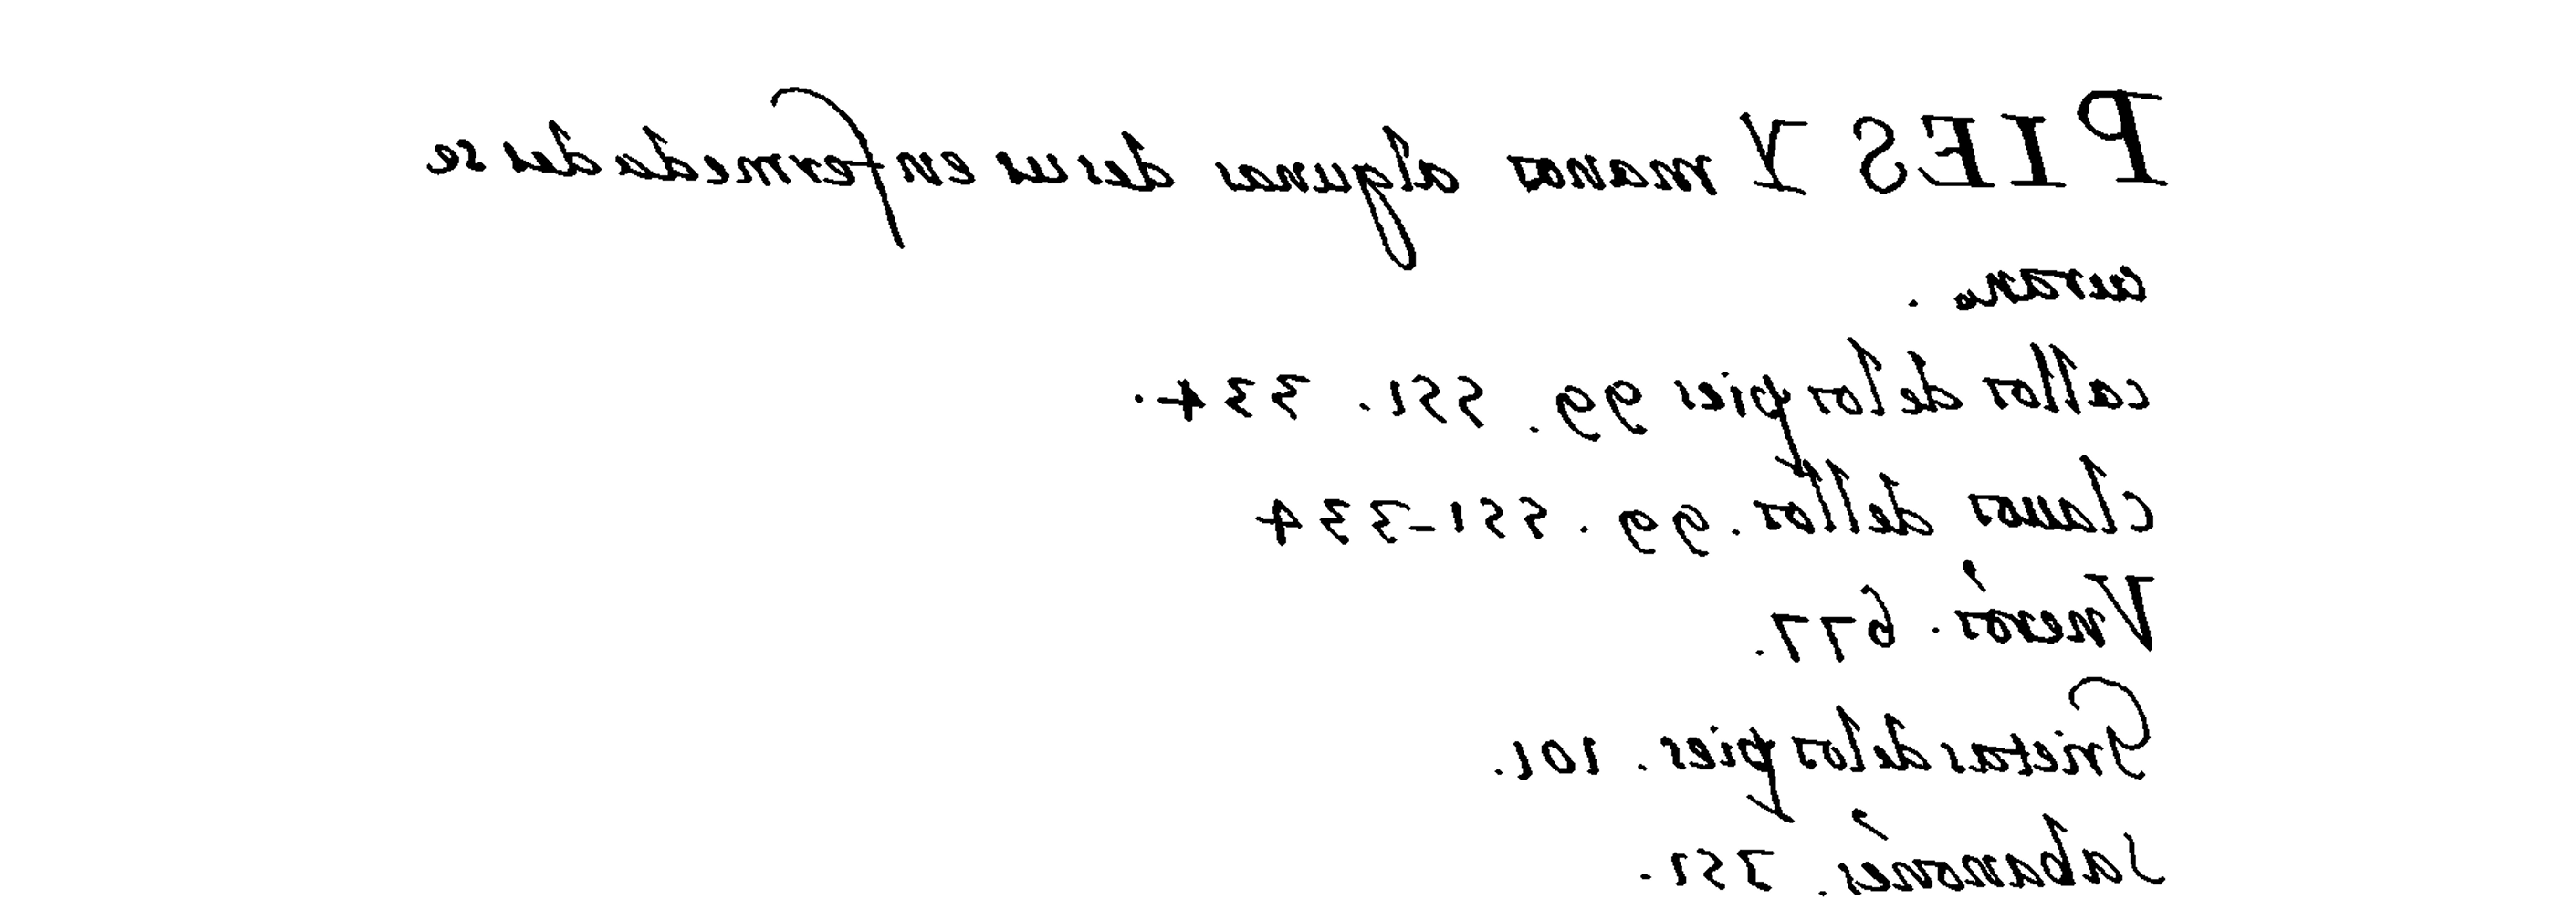 PIES Y manos algunas desus enfermedades se
curan.
callos delos pies 99. 551. 334.
clauos dellos. 99. 551-334
Vnerós. 677.
Grietas delos pies. 101.
sabanónes. 751.